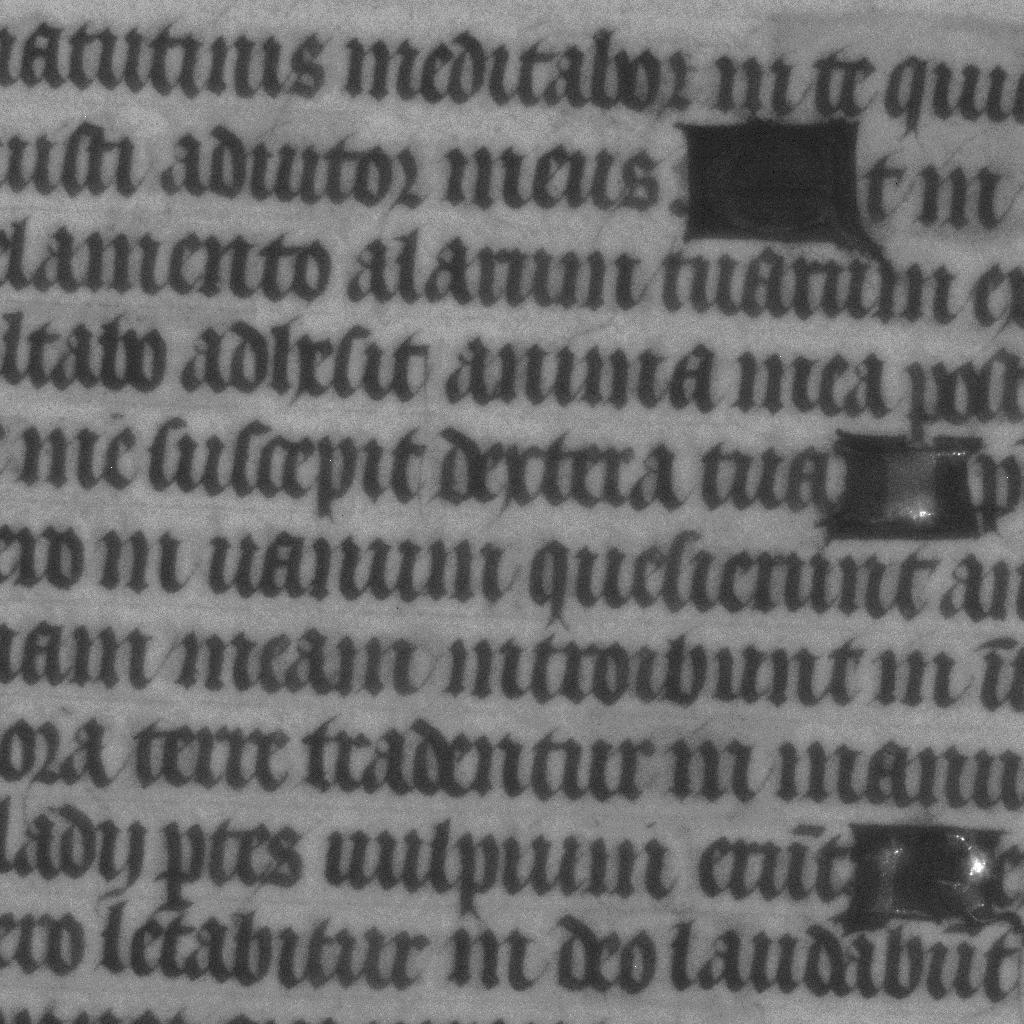 matutinis meditabor in te quia
fuisti adiutor meus : Et in
uelamento alarum tuarum ex
ultabo adhesit anima mea post
te me suscepit dextera tua Ip̄
uero in uanum quesierunt an
imam meam introibunt in īf
iora terre tradentur in manu
gladij ptes uulpium erūt Re
uero letabitur in deo laudabūt